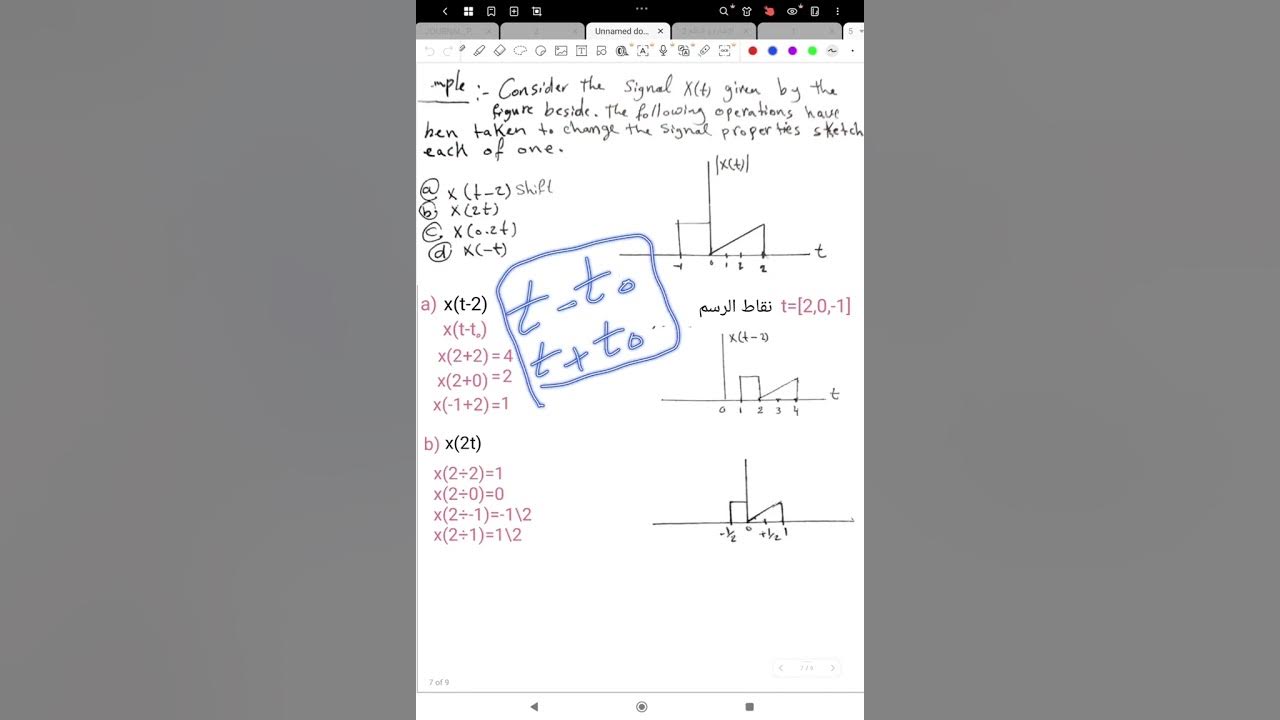 Unnamed do...
mple :- Consider the Signal X(t) given by the
figure beside. The following operations have
ben taken to change the signal properties sketch
each of one.
|X(t)|
ⓐ x(t-2) Shift
ⓑ x(2t)
ⓒ x(0.2t)
ⓓ x(-t)
t
-1 0 1 2
t-t₀
t+t₀
a) x(t-2)
نقاط الرسم t=[2,0,-1]
x(t-t₀)
x(t-2)
x(2+2)=4
x(2+0)=2
x(-1+2)=1
t
0 1 2 3 4
b) x(2t)
x(2÷2)=1
x(2÷0)=0
x(2÷-1)=-1\2
x(2÷1)=1\2
-1/2 0 +1/2 1
7/9
7 of 9